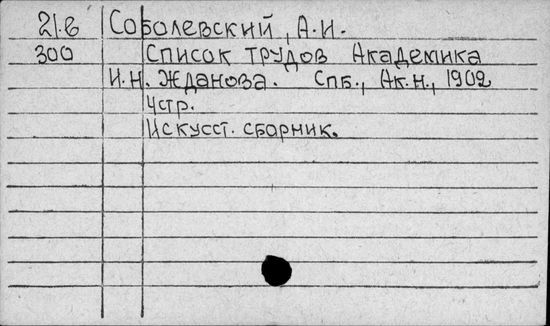 21.в Соболевский, А.И.
300 Список трудов Академика
И.Н. Жданова. Спб., Ак.н., 1902
4стр.
Искусст. сборник.